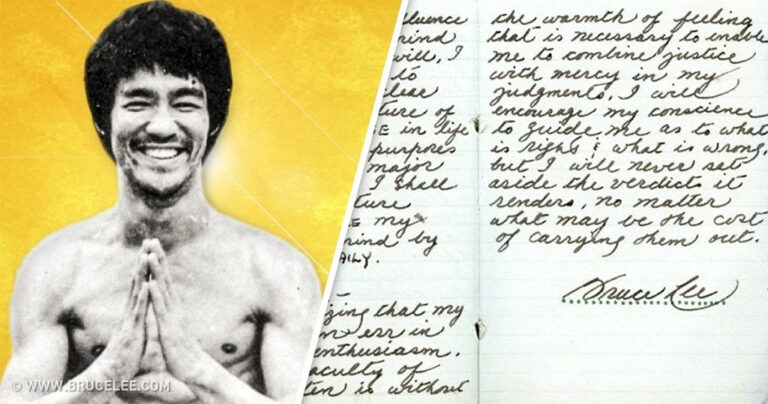 fluence
mind
will, I
to
clear
ture of
E in life
purposes
major
I shall
ture
E my
mind by
AILY.
zing that my
err in
enthusiasm,
aculty of
ten is without
the warmth of feeling
that is necessary to enable
me to combine justice
with mercy in my
judgments, I will
encourage my conscience
to guide me as to what
is right & what is wrong,
but I will never set
aside the verdicts it
renders, no matter
what may be the cost
of carrying them out.
Bruce Lee
© WWW.BRUCELEE.COM